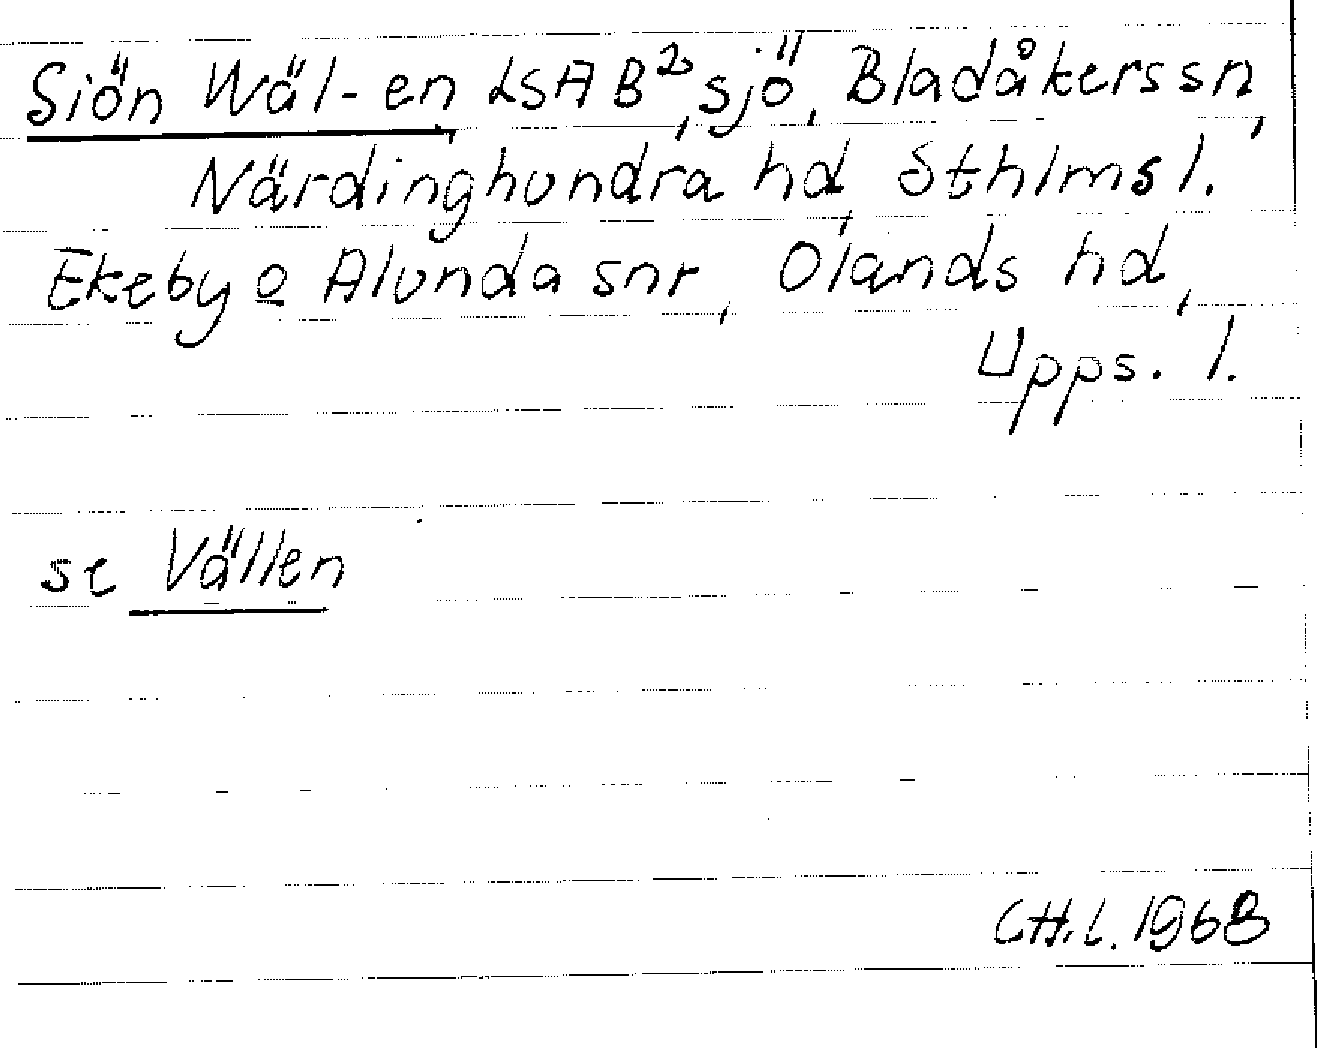 Siön Wäl-en, LSA B², sjö, Bladåkers sn,
Närdinghundra hd, Sthlms l.
Ekeby o Alunda snr, Olands hd,
Upps. l.
se Vällen
CH.L. 1968